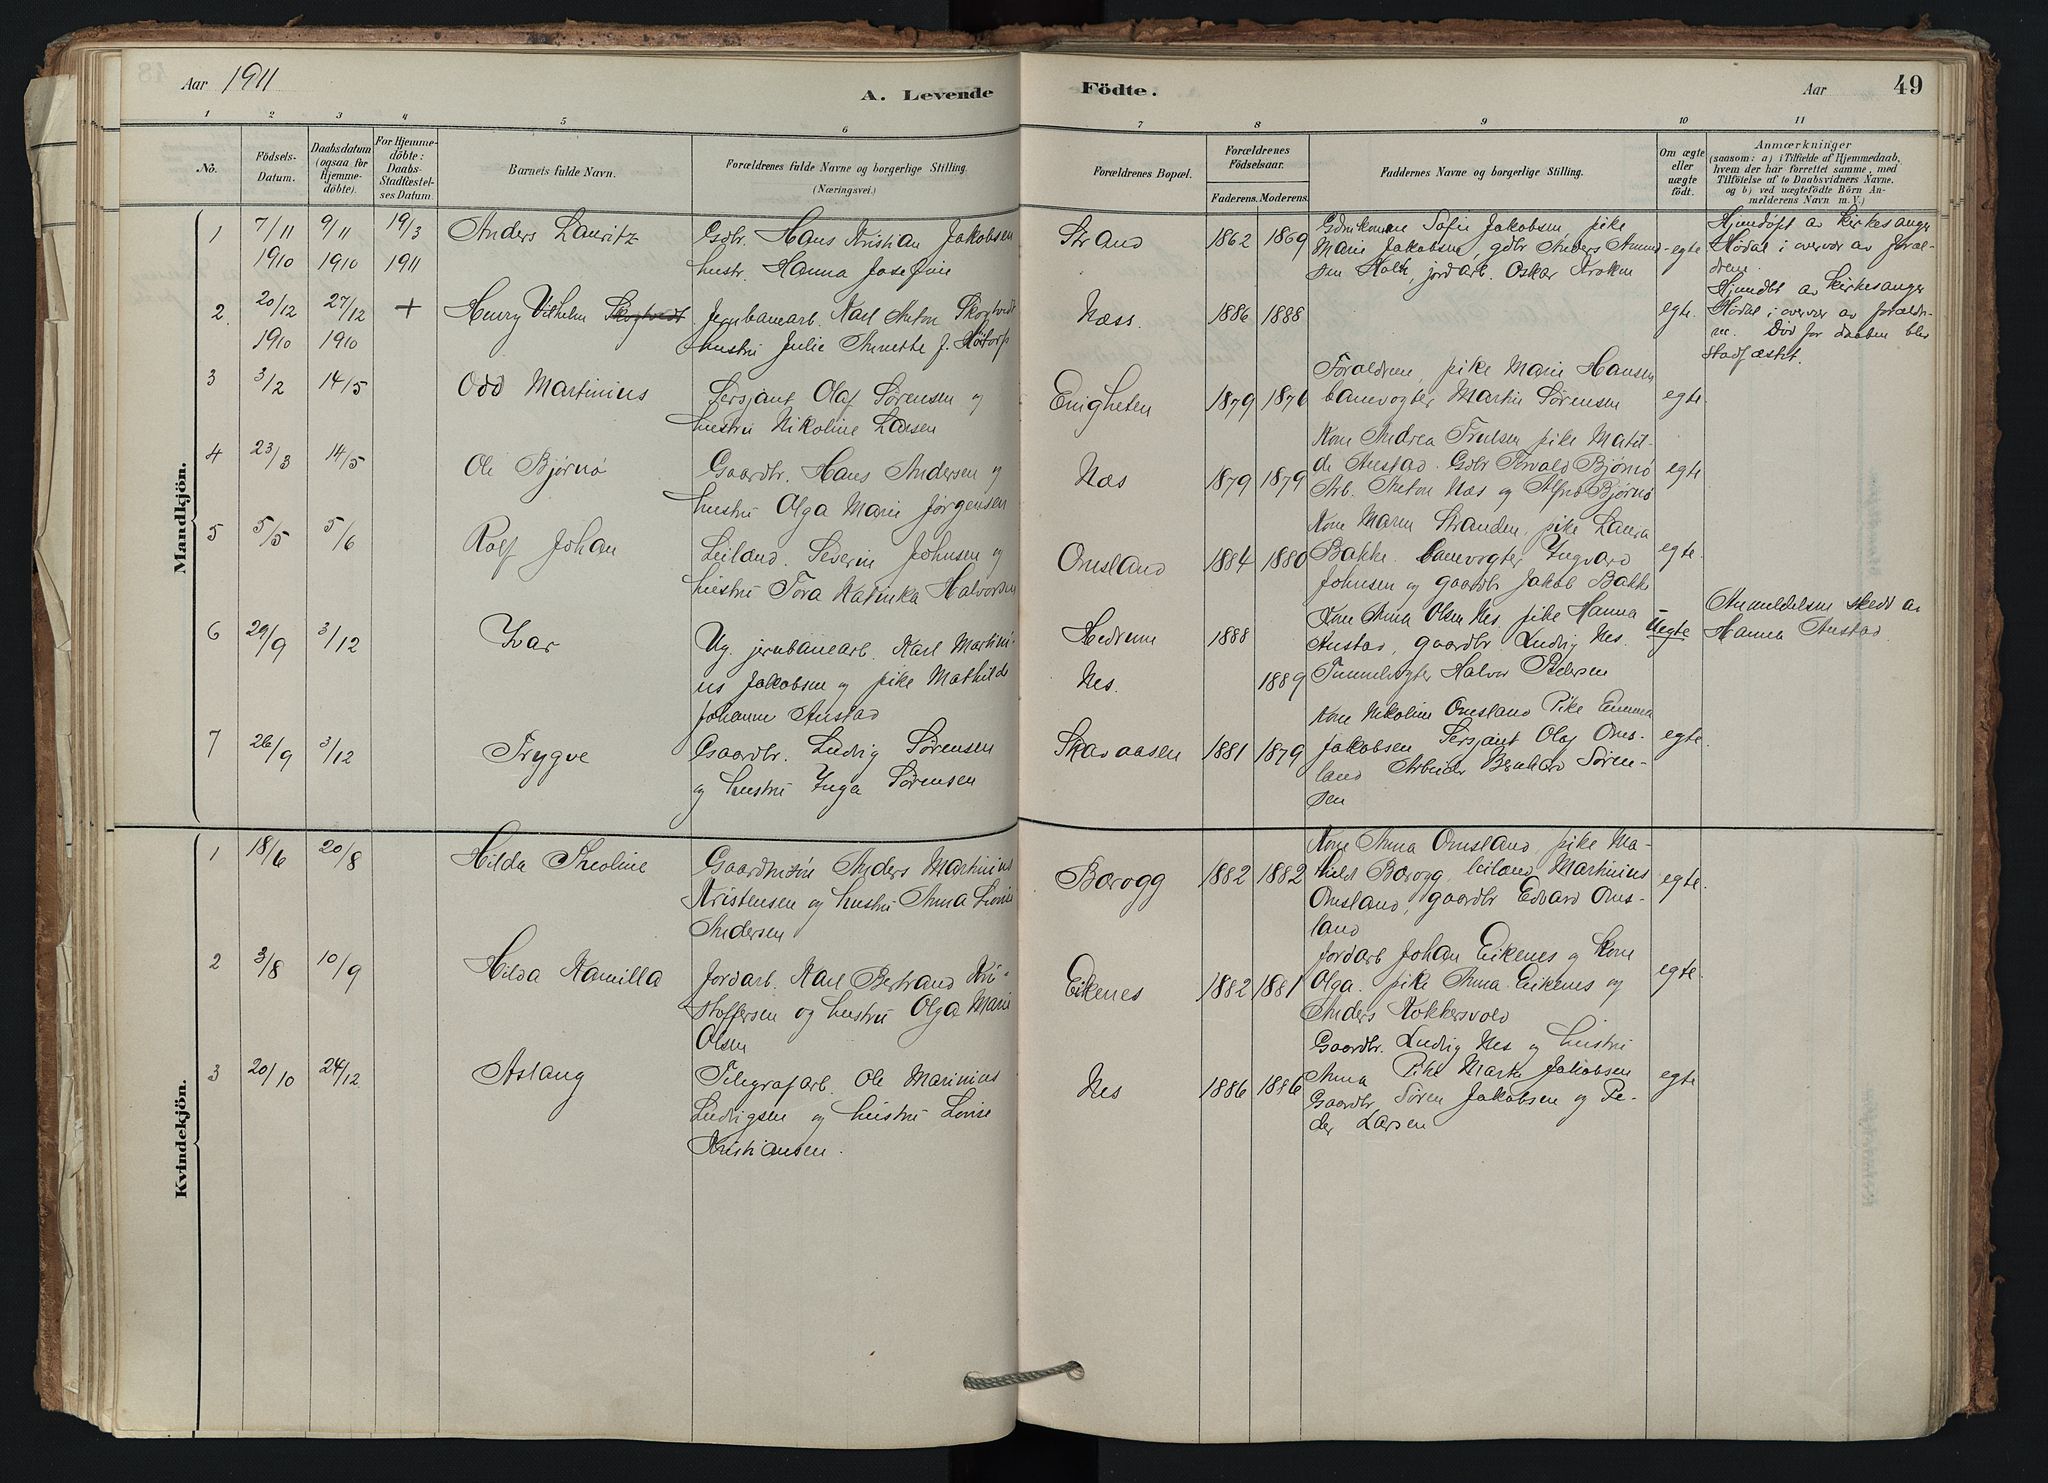 Aar 1911
A. Levende Födte.
Aar 49
1 2 3 4 5 6 7 8 9 10 11
No.
Födsels-
Datum.
Daabsdatum
(ogsaa for
Hjemme-
döbte).
For Hjemme-
döbte:
Daabs-
Stadfæstel-
ses Datum.
Barnets fulde Navn.
Forældrenes fulde Navne og borgerlige Stilling.
(Næringsvei.)
Forældrenes Bopæl.
Forældrenes
Födselsaar.
Faderens. Moderens.
Faddernes Navne og borgerlige Stilling.
Om ægte
eller
uægte
födt.
Anmærkninger
(saasom: a) i Tilfælde af Hjemmedaab,
hvem der har forrettet samme, med
Tilföielse af to Daabsvidners Navne,
og b) ved uægtefödte Börn An-
melderens Navn m. V.)
Mandkjön.
1 7/11 9/11 19/3 Anders Lauritz
1910 1910 1911
Gdbr. Hans Kristian Jakobsen
hustr. Hanna Josefine
Strand 1862 1869
Sofie Jakobsen, pike
Marie Jakobsen, gdbr Anders Amund-
sen Holt, jordarb. Oskar Kroken
egte
Hjemdøpt av Kirkesanger
Hødal i overvær av foræl-
drene.
2. 20/12 27/12 + Henry Vilhelm Skogtvedt
1910 1910
Jernbanearb. Karl Anton Skogtvedt
hustru Julie Annette f.
Næss. 1886 1888
egte.
Hjemdbt av Kirkesanger
Hødal i overvær av forældre-
ne. Død før daaben blev
stadfæstet.
3 3/2 14/5 Odd Martinius
Sersjant Olaf Sørensen og
hustru Nikoline Larsen
Enigheten 1879 1876
Forældrene, pike Marie Hansen
banevogter Martin Sørensen
egte.
4 23/3 14/5 Ole Bjørnø
Gaardbr. Hans Andersen og
hustru Olga Marie Jørgensen
Næs 1879 1879
Kone Andrea Trulsen pike Matil-
de Austad. Gdbr Torvald Bjørnø
Arb. Anton Næs og Alfred Bjørnø
egte
5 5/5 5/6 Rolf Johan
Leilænd. Severin Johnsen og
hustru Tora Katinka Halvorsen
Omsland 1884 1880
Kone Maren Stranden, pike Laura
Bakke. banevogter Ingvard
Johnsen og gaardbr Jakob Bakke
egte.
6 29/9 3/12 Ivar
Ug. jernbanearb. Karl Martini-
us Jakobsen og pike Mathilde
Johanne Austad
Hedrum 1888
Nes. 1889
Kone Anna Olsen Nes, pike Hanna
Austad, gaardbr. Ludvig Nes.
Tunnelvogter Halvor Pedersen
Uegte
Anmeldelsen skedd av
Hanna Austad.
7 26/9 3/12 Trygve
Gaardbr. Ludvig Sørensen
og hustru Inga Sørensen
Skavaasen 1881 1879
Kone Nikoline Omsland Pike Emma
Jakobsen Sersjant Olaf Oms-
land Arbeider Bernhard Søren-
sen
egte.
Kvindekjön.
1 18/6 20/8 Hilda Theoline
Gaardmsön Anders Martinius
Kristensen og hustru Anna Lovise
Andersen
Barogg 1882 1882
Kone Anna Omsland, pike Ma-
thilde Barogg, leilænd. Martinius
Omsland, gaardbr Edvard Oms-
land
egte.
2 3/8 10/9 Hilda Kamilla
Jordarb. Karl Bertrand Kri-
stoffersen og hustru Olga Marie
Olsen
Eikenes 1882 1881
Jordarb Johan Eikenes og kone
Olga. pike Anna Eikenes og
Anders Kokkersvold
egte.
3 20/10 24/12 Aslaug
Telegrafarb. Ole Marinius
Ludvigsen og hustru Lovise
Kristiansen.
Nes 1886 1886
Gaardbr. Ludvig Nes og hustru
Anna Pike Marte Jakobsen
Gaardbr Søren Jakobsen og Pe-
der Larsen
egte